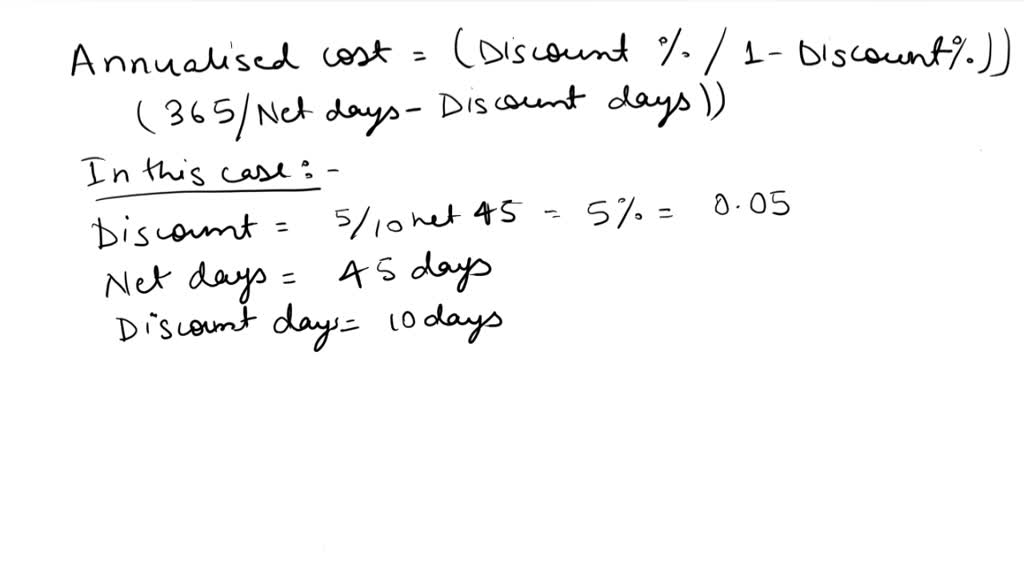 Annualised cost = (Discount % / 1 - Discount%.))
(365/Net days - Discount days))
In this case : -
Discount = 5/10 net 45 = 5% = 0.05
Net days = 45 days
Discount days = 10 days